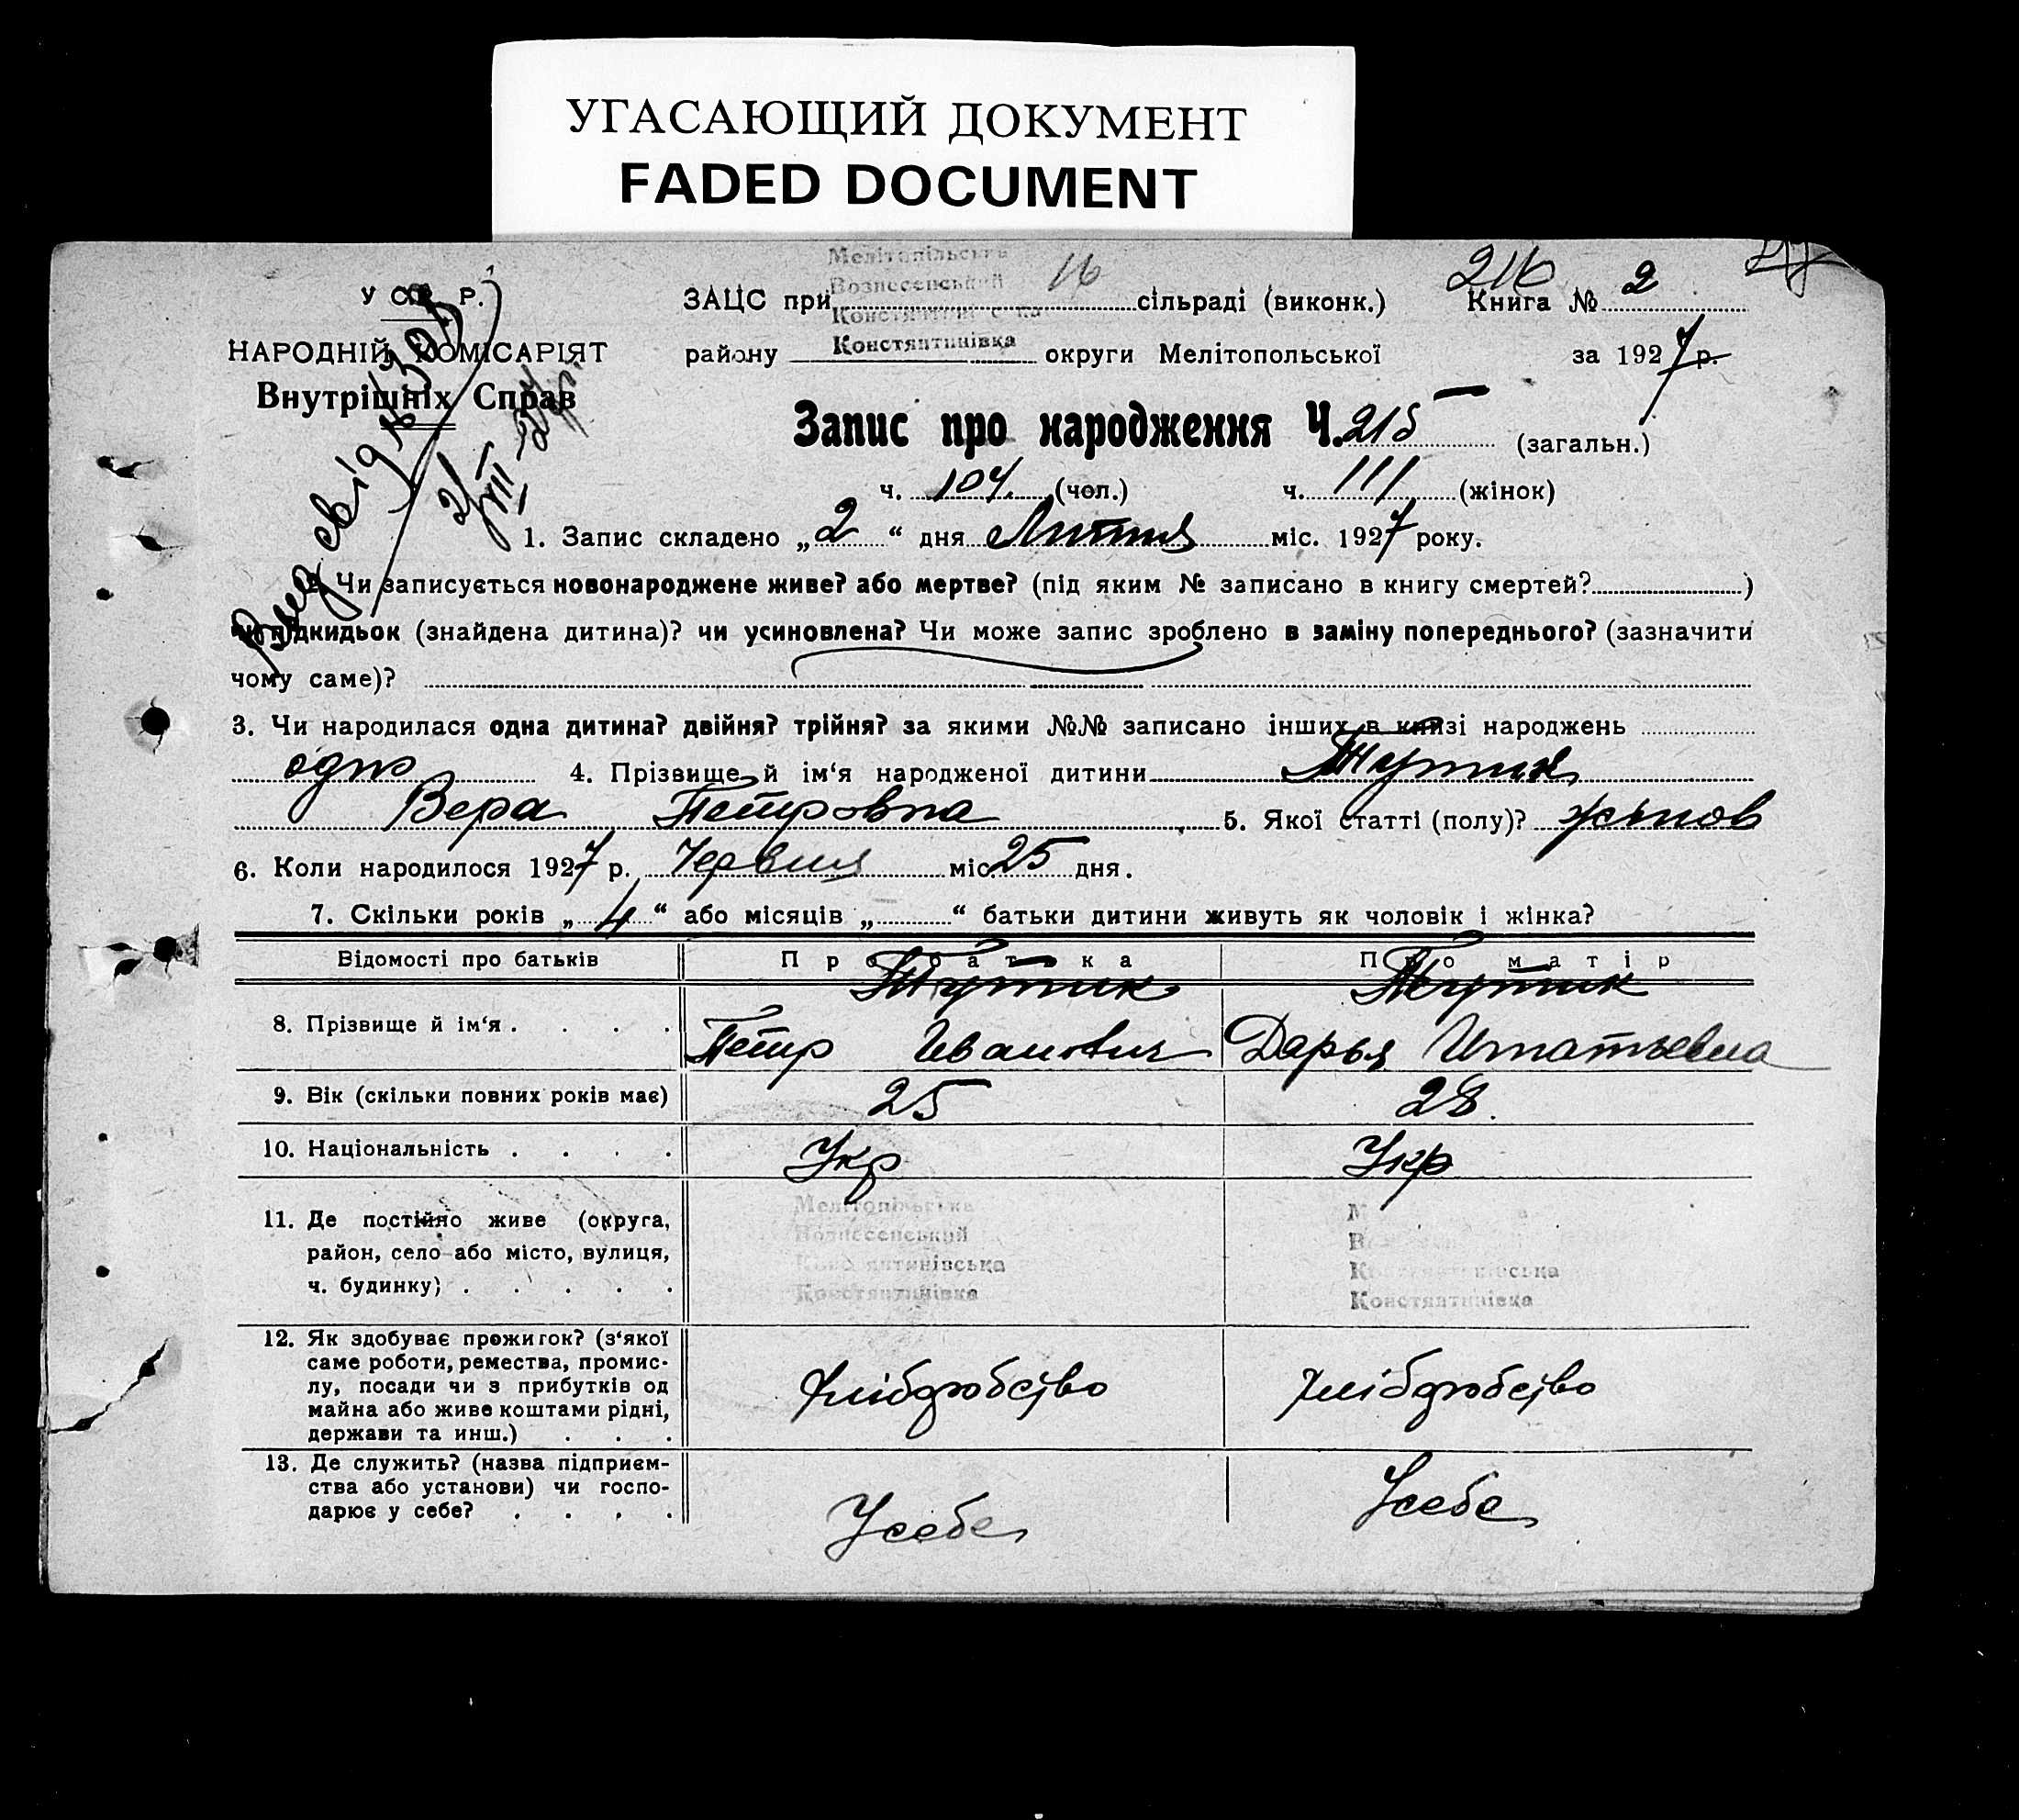 УГАСАЮЩИЙ ДОКУМЕНТ
FADED DOCUMENT
Мелітопільська
Вознесенський
16
216
У С Р Р.
ЗАЦС при сільраді (виконк.) Книга № 2
НАРОДНІЙ КОМІСАРІЯТ
району Констянтинівка округи Мелітопольської за 1927 р.
Внутрішніх Справ
Запис про народження Ч. 215 (загальн.)
ч. 104 (чол.) ч. 111 (жінок)
1. Запис складено „2“ дня Липня міс. 1927 року.
2. Чи записується новонароджене живе? або мертве? (під яким № записано в книгу смертей? )
чи підкидьок (знайдена дитина)? чи усиновлена? Чи може запис зроблено в заміну попереднього? (зазначити
чому саме)?
3. Чи народилася одна дитина? двійня? трійня? за якими №№ записано інших в книзі народжень
одно 4. Прізвище й ім‘я народженої дитини
Вера Петровна 5. Якої статті (полу)? жінов
6. Коли народилося 1927 р. Червня міс. 25 дня.
7. Скільки років „4“ або місяців „ “ батьки дитини живуть як чоловік і жінка?
Відомості про батьків Про батька Про матір
8. Прізвище й ім‘я . . . .
Петр Иванович Дарья Игнатьевна
9. Вік (скільки повних років має) 25 28.
10. Національність . . . . Укр Укр
Мелітопільська
Вознесенський
11. Де постійно живе (округа,
район, село або місто, вулиця,
ч. будинку) . . . . .
Констянтинівська Констянтинівська
Констянтинівка Констянтинівка
12. Як здобуває прожиток? (з‘якої
саме роботи, ремества, промис-
лу, посади чи з прибутків од
майна або живе коштами рідні,
держави та инш.) . . .
хліборобство хліборобство
13. Де служить? (назва підприєм-
ства або установи) чи госпо-
дарює у себе? . . . .
Усебе Усебе